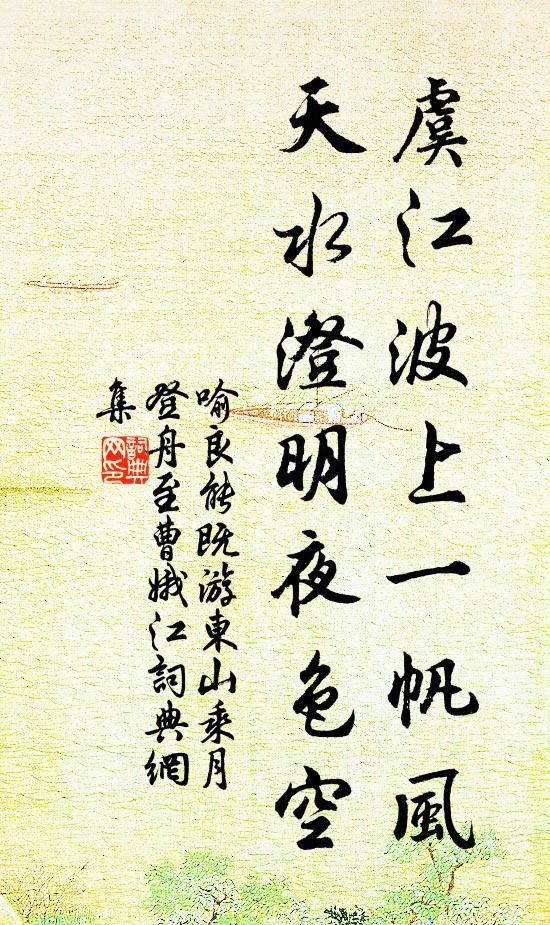 虞江波上一帆風
天水澄明夜色空
喻良能既游東山乘月
登舟至曹娥江詞典網
集
詞典
网印